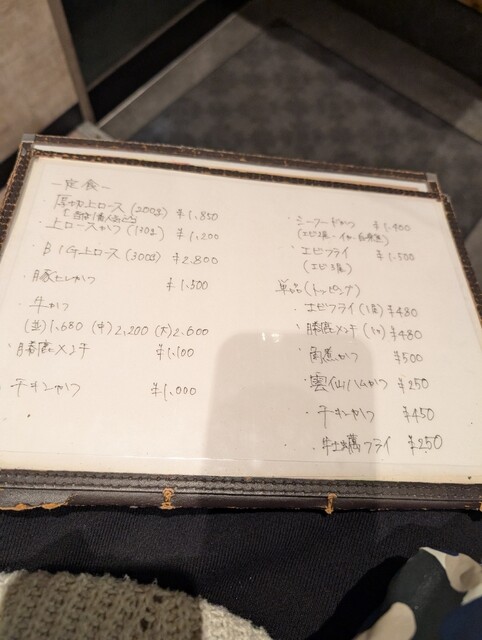 -定食-
・厚切上ロース(200g) ¥1,850
・上ロースかつ(130g) ¥1,200
・BIG上ロース(300g) ¥2,800
・豚ヒレかつ ¥1,500
・牛かつ
(並)1,680 (中)2,200 (大)2,600
・勝鹿メンチ ¥1,100
・チキンかつ ¥1,000
・シーフードかつ ¥1,400
・エビフライ ¥1,500
(エビ3尾)
単品(トッピング)
・エビフライ(1尾)¥480
・勝鹿メンチ(1ヶ)¥480
・角煮かつ ¥500
・雲仙ハムかつ ¥250
・チキンかつ ¥450
・牡蠣フライ ¥250